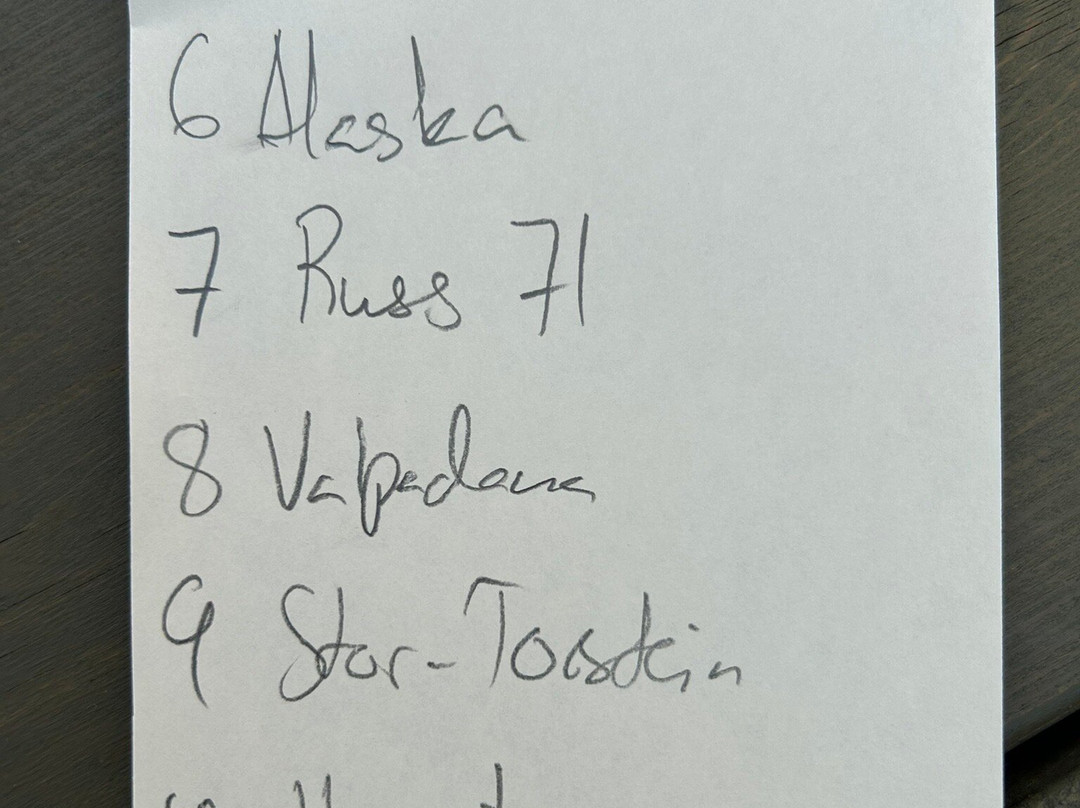 6 Alaska
7 Russ 71
8 Valpadana
9 Stor-Torstein